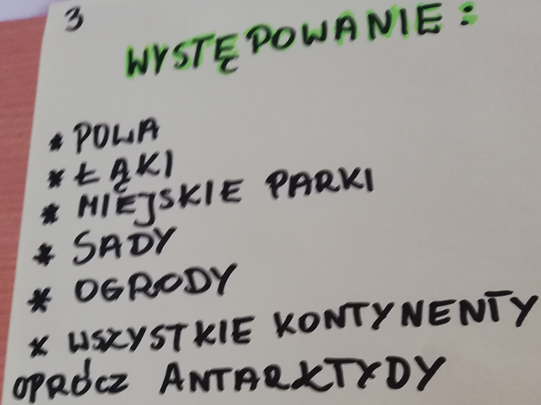 3
WYSTĘPOWANIE:
* POLA
* ŁĄKI
* MIEJSKIE PARKI
* SADY
* OGRODY
* WSZYSTKIE KONTYNENTY
OPRÓCZ ANTARKTYDY